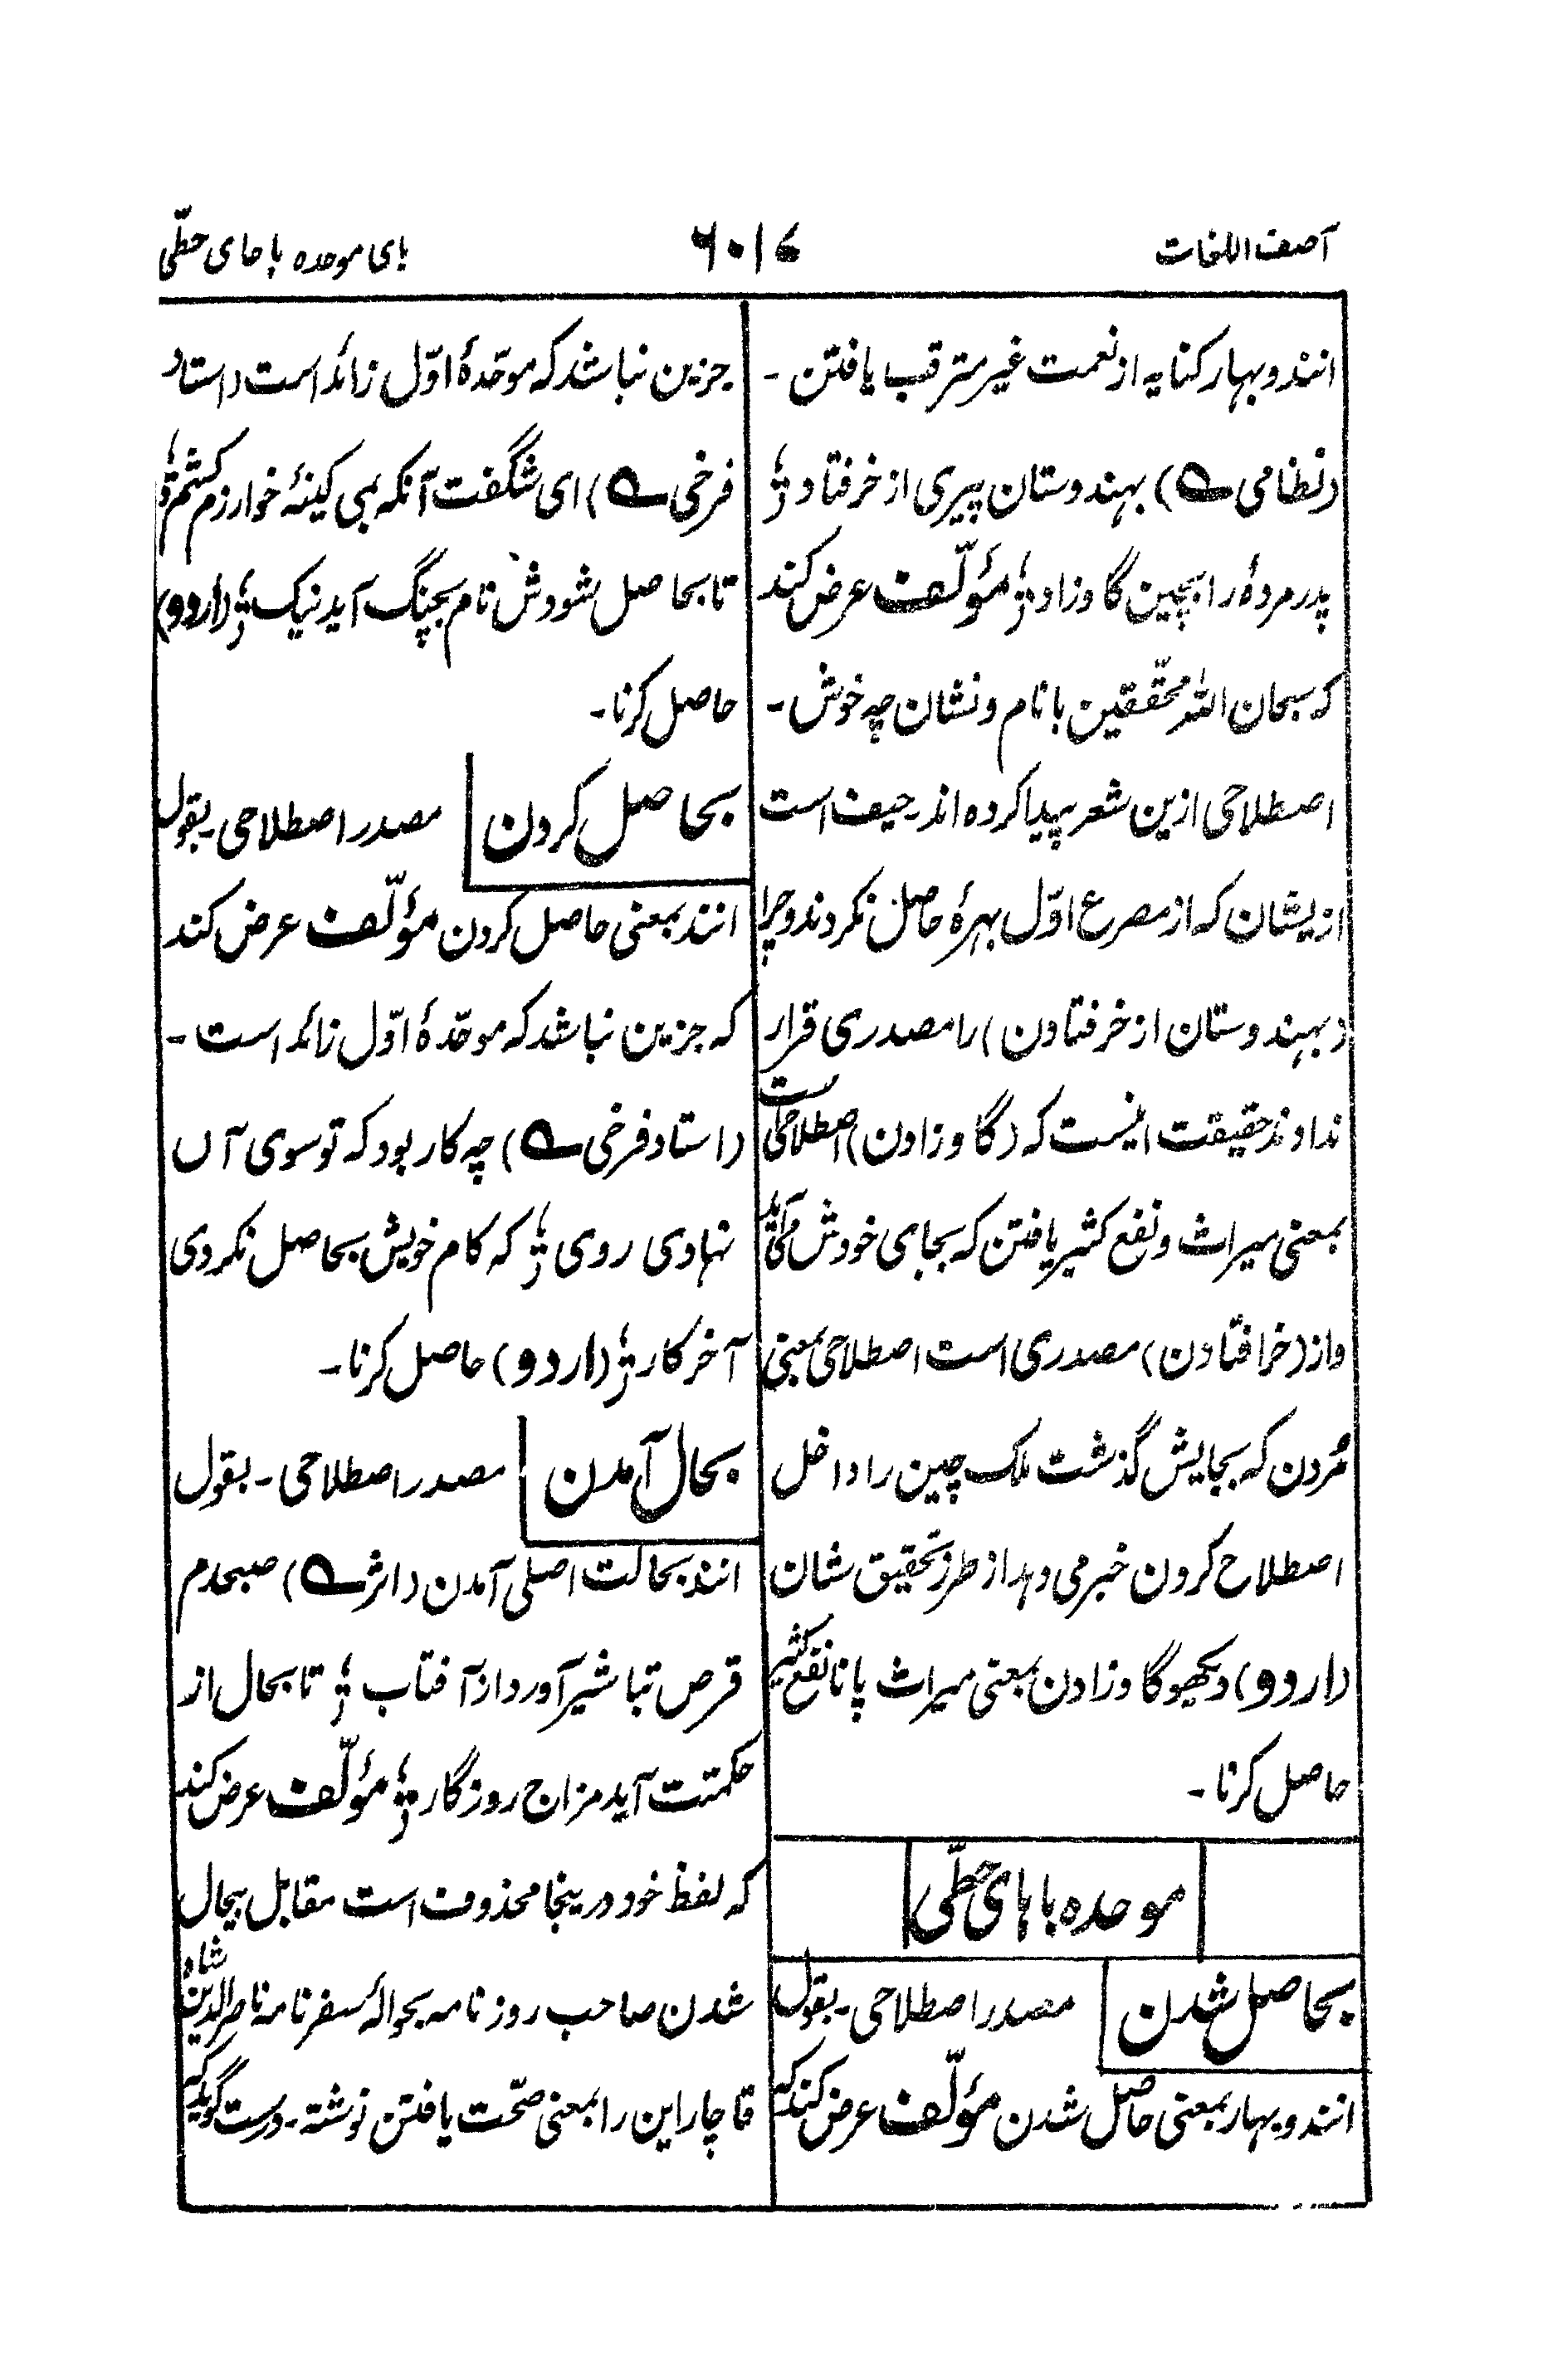 آصف اللغات
۶۰۱۷
بای موحده با حای حطّی
انند و بهار کنایه از نعمت غیر مترقب یافتن ۔
(نظامی ے) بهندوستان پیری از خر فتاد ؛
پدر مردهٔ را بچین گاو زاد ؛ مؤلّف عرض کند
که سبحان الله محقّقین با نام و نشان چه خوش ۔
اصطلاحی ازین شعر پیدا کرده اند ۔ حیف است
از یشان که از مصرع اوّل بهرهٔ حاصل نکردند و چرا
(بهندوستان از خر فتادن) را مصدری قرار
ندادند حقیقت اینست که (گاو زادن) اصطلاحی است
بمعنی میراث و نفع کثیر یافتن که بجای خودش می آید
و از (خر افتادن) مصدری است اصطلاحی بمعنی
مُردن که بجایش گذشت ملک چین را داخل
اصطلاح کردن خبر می دهد از طرز تحقیق شان
(اردو) دیکھو گاو زادن بمعنی میراث پانا نفع کثیر
حاصل کرنا ۔
موحده با حای حطّی
بحاصل شدن مصدر اصطلاحی ۔ بقول
انند و بهار بمعنی حاصل شدن مؤلّف عرض کند که
جزین نباشد که موحّدهٔ اوّل زائد است (استاد
فرخی ے) ای شگفت آنکه همی کینهٔ خوارزم کشم ؛
تا بحاصل شودش نام بچنگ آید نیک ؛ (اردو)
حاصل کرنا ۔
بحاصل کردن مصدر اصطلاحی ۔ بقول
انند بمعنی حاصل کردن مؤلّف عرض کند
که جزین نباشد که موحّدهٔ اوّل زائد است ۔
(استاد فرخی ے) چه کار بود که تو سوی آں
نهادی روی ؛ که کام خویش بحاصل نکردی
آخر کار ؛ (اردو) حاصل کرنا ۔
بحال آمدن مصدر اصطلاحی ۔ بقول
انند بحالت اصلی آمدن (اثر ے) صبحدم
قرص تباشیر آورد از آفتاب ؛ تا بحال از
حکمتت آید مزاج روزگار ؛ مؤلّف عرض کند
که لفظ خود درینجا محذوف است مقابل بیحال
شدن صاحب روزنامه بحوالهٔ سفرنامه ناصر الدین شاه
قاچار این را بمعنی صحّت یافتن نوشته ۔ درست گوید که